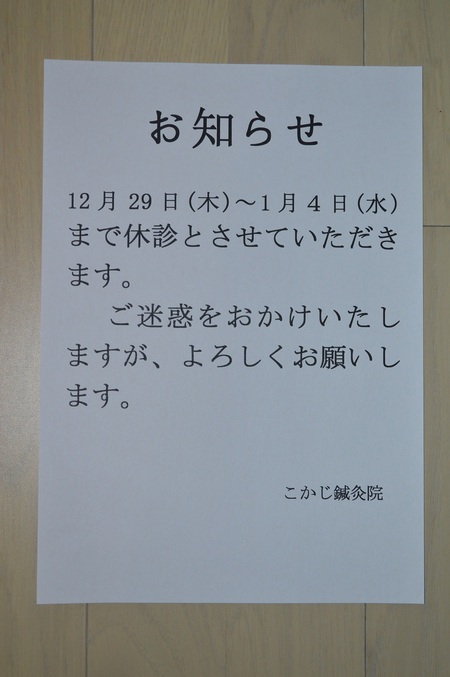 お知らせ
12月29日(木)～1月4日(水)
まで休診とさせていただき
ます。
ご迷惑をおかけいたし
ますが、よろしくお願いし
ます。
こかじ鍼灸院